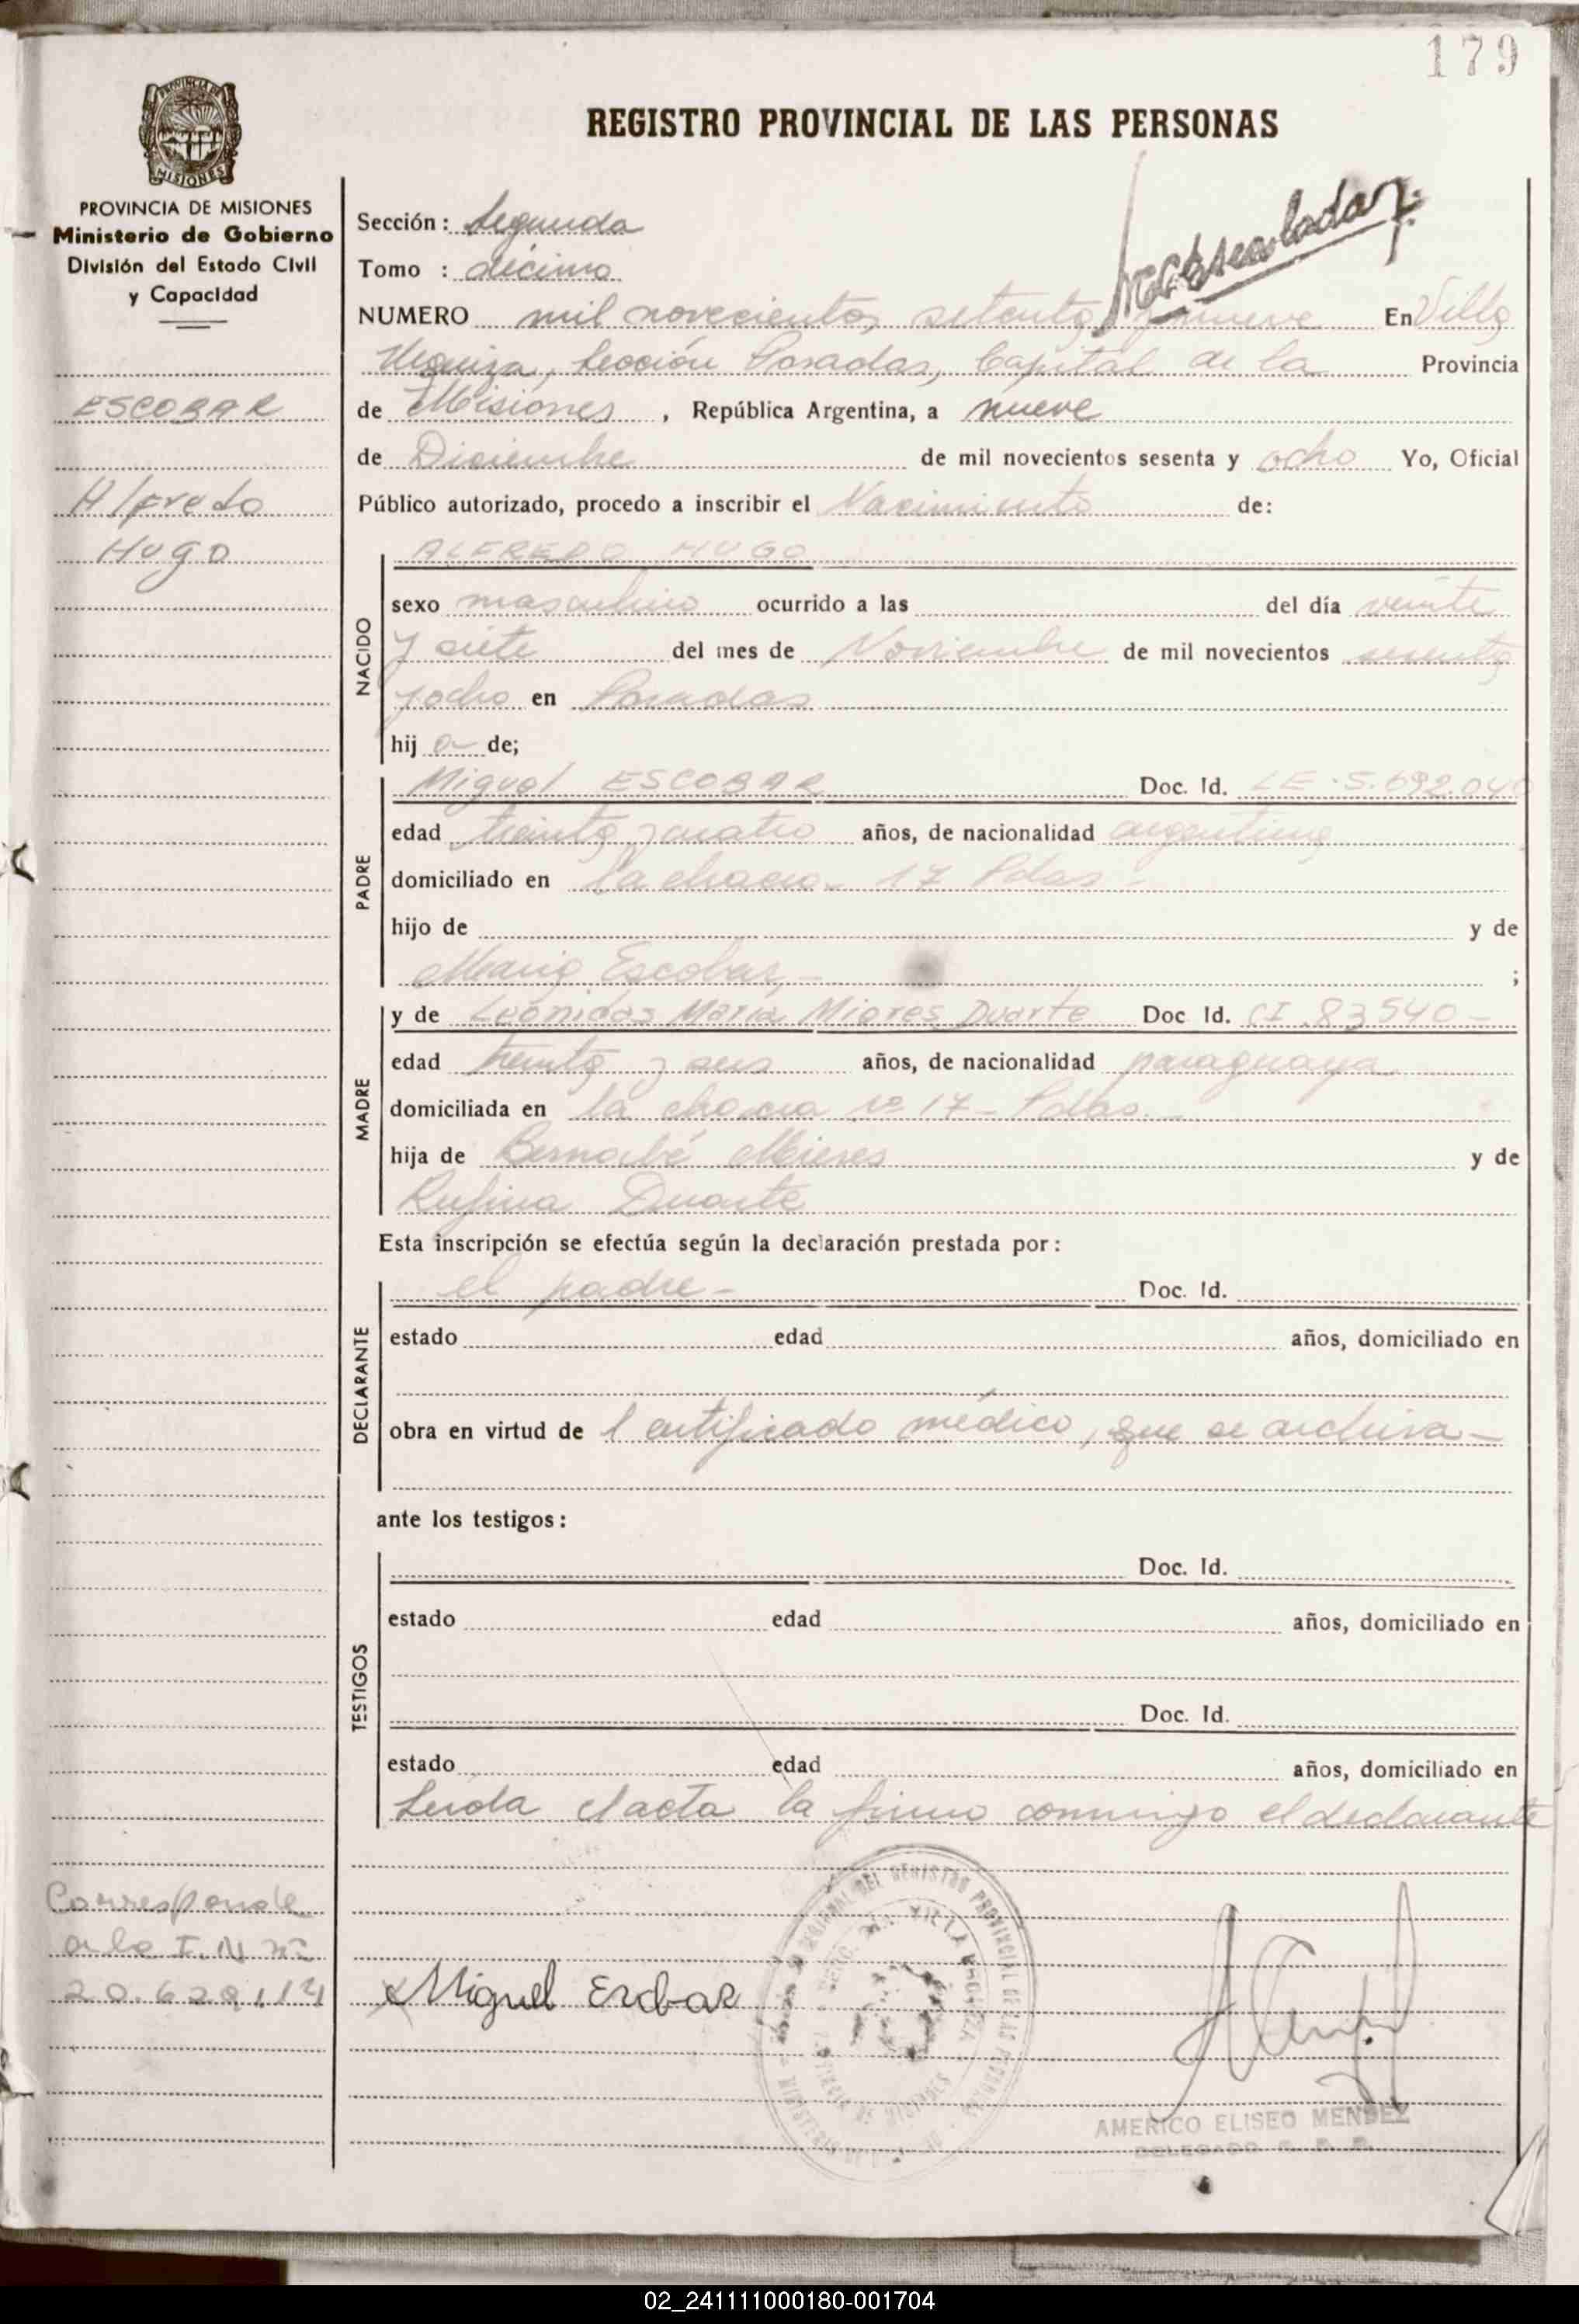 179
PROVINCIA DE MISIONES
REGISTRO PROVINCIAL DE LAS PERSONAS
PROVINCIA DE MISIONES
Ministerio de Gobierno
División del Estado Civil
y Capacidad
ESCOBAR
Alfredo
Hugo
Corresponde
a la I.N nº
Sección: Segunda
Tomo : décimo
NUMERO mil novecientos setenta y nueve En Villa
Urquiza, Sección Posadas, Capital de la Provincia
de Misiones, República Argentina, a nueve
de Diciembre de mil novecientos sesenta y ocho Yo, Oficial
Público autorizado, procedo a inscribir el Nacimiento de:
NACIDO
ALFREDO HUGO
sexo masculino ocurrido a las del día veinte
y siete del mes de Noviembre de mil novecientos sesenta
y ocho en Posadas
hij o de;
PADRE
Miguel ESCOBAR Doc. Id. LE-5.692.040
edad treinta y cuatro años, de nacionalidad argentina
domiciliado en la chacra 17 Pdas -
hijo de y de
María Escobar, - ;
MADRE
y de Leónidas María Mieres Duarte Doc Id. CI.83540-
edad treinta y seis años, de nacionalidad paraguaya
domiciliada en la chacra nº 17- Pdas. -
hija de Bernabé Mieres y de
Rufina Duarte
Esta inscripción se efectúa según la declaración prestada por:
DECLARANTE
el padre - Doc. Id.
estado edad años, domiciliado en
obra en virtud de l certificado médico, que se archiva -
ante los testigos:
TESTIGOS
Doc. Id.
estado edad años, domiciliado en
Doc. Id.
estado edad años, domiciliado en
Leída el acta la firma conmigo el declarante
Miguel Escobar
AMERICO ELISEO MENDEZ
DELEGADO
02_241111000180-001704